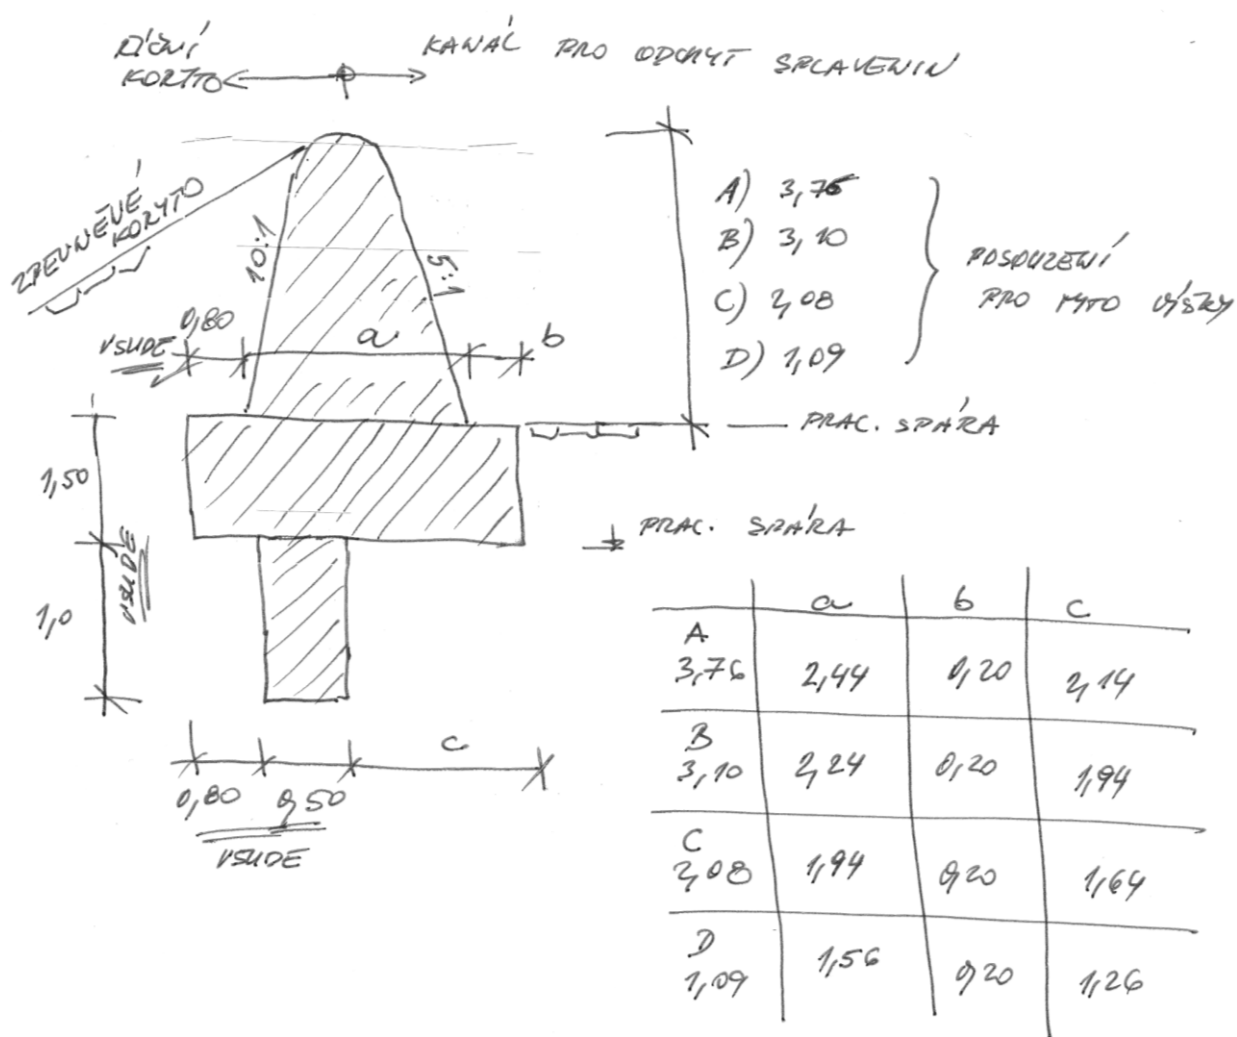 ŘÍČNÍ
KORYTO
KANÁL PRO ODCHYT SPLAVENIN
ZPEVNĚNÉ
KORYTO
10:1
5:1
A) 3,76
B) 3,10
C) 2,08
D) 1,09
POSOUZENÍ
PRO TYTO VÝŠKY
0,80
VŠUDE
a
b
PRAC. SPÁRA
1,50
1,0
VŠUDE
PRAC. SPÁRA
0,80
0,50
c
VŠUDE
a b c
A
3,76 2,44 0,20 2,14
B
3,10 2,24 0,20 1,94
C
2,08 1,94 0,20 1,64
D
1,09 1,56 0,20 1,26